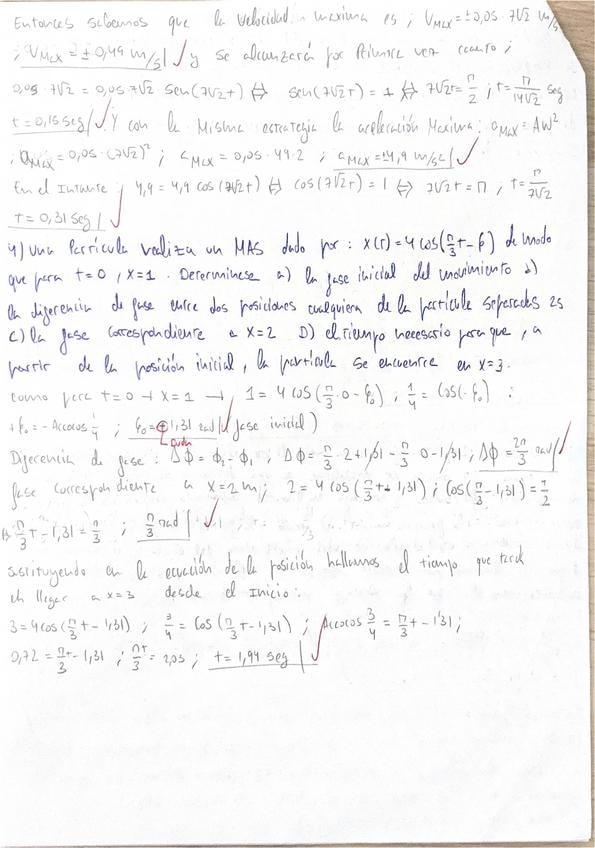 Entonces sabemos que la velocidad máxima es ; Vmax = ±0,05 · 7√2 m/s
; Vmax = ±0,49 m/s | y se alcanzará por primera vez cuanto ;
0,05 · 7√2 = 0,05 · 7√2 sen(7√2t) ⇔ sen(7√2t) = 1 ⇔ 7√2t = π/2 ; t = π/14√2 seg
t = 0,15 seg | y con la misma estrategia la aceleración Maxima: amax = Aω²
; amax = 0,05 · (7√2)² ; amax = 0,05 · 49·2 ; amax = ±4,9 m/s² |
En el Intante ; 4,9 = 4,9 cos(7√2t) ⇔ cos(7√2t) = 1 ⇔ 7√2t = π , t = π/7√2
t = 0,31 seg |
4) Una Partícula realiza un MAS dado por : x(t) = 4 cos(π/3 t - φ₀) de modo
que para t=0 , x=1 . Determinese a) la fase inicial del movimiento b)
la diferencia de fase entre dos posiciones cualquiera de la partícula separadas 2s
C) la fase correspondiente a x=2 D) el tiempo necesario para que , a
partir de la posición inicial, la partícula se encuentre en x=3.
como para t=0 → x=1 → 1 = 4 cos(π/3 · 0 - φ₀) ; 1/4 = cos(-φ₀) :
+φ₀ = - Arccos 1/4 ; φ₀ = + 1,31 rad | (fase inicial)
Diferencia de fase : ΔΦ = Φ₂ - Φ₁ ; ΔΦ = π/3 · 2 + 1,31 - π/3 · 0 - 1,31 ; ΔΦ = 2π/3 rad |
fase correspondiente a x=2 m ; 2 = 4 cos(π/3 t - 1,31) ; cos(π/3 t - 1,31) = 1/2
π/3 t - 1,31 = π/3 ; π/3 rad |
sustituyendo en la ecuación de la posición hallamos el tiempo que tarda
en llegar a x=3 desde el Inicio :
3 = 4 cos(π/3 t - 1,31) ; 3/4 = cos(π/3 t - 1,31) ; Arccos 3/4 = π/3 t - 1,31 ;
0,72 = π/3 t - 1,31 ; πt/3 = 2,03 ; t = 1,94 seg |